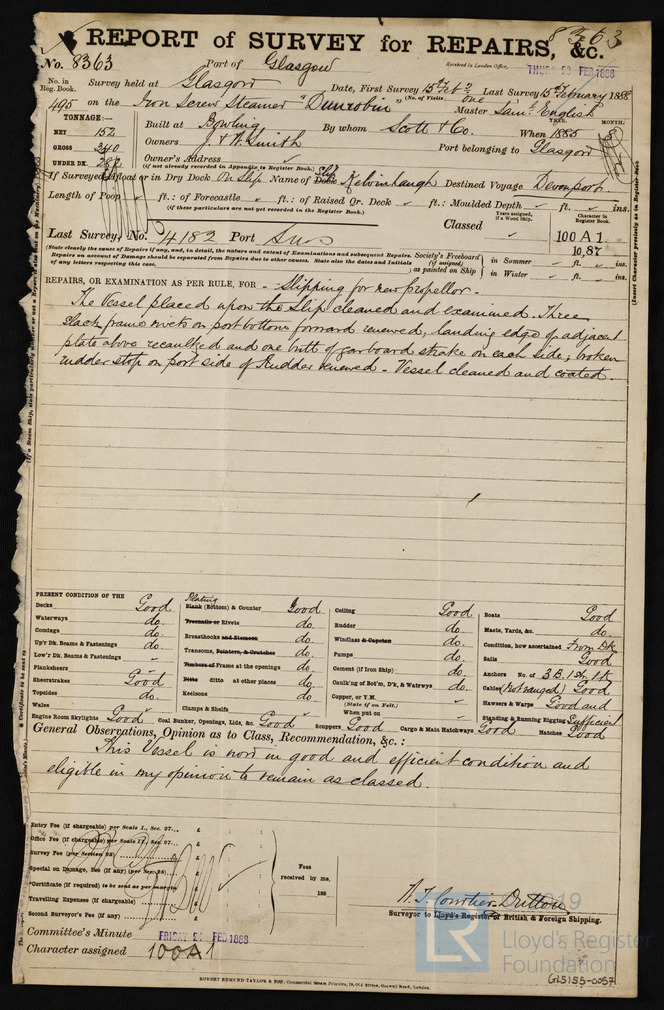 REPORT of SURVEY for REPAIRS, &c.
8363
No. 8363 Port of Glasgow
Received in London Office, THURS 23 FEB 1888
No. in Reg. Book. Survey held at Glasgow Date, First Survey 15th Feb Last Survey 15th February 1888
(No. of Visits, One)
495 on the Iron Screw Steamer "Dunrobin" Master Saml. English
TONNAGE:—
NET 152
GROSS 340
UNDER DK.
Built at Bowling By whom Scott & Co. When 1885
YRS. MONTH.
Owners J. & W. Smith Port belonging to Glasgow
Owner's Address
(if not already recorded in Appendix to Register Book.)
If Surveyed Afloat or in Dry Dock On Slip Name of Dock Slip Kelvinhaugh Destined Voyage Devonport
Length of Poop ft.: of Forecastle ft.: of Raised Qr. Deck ft.: Moulded Depth ft. ins.
(if these particulars are not yet recorded in the Register Book.)
Last Survey, No. 4182 Port Sws Classed
Years assigned, if a Wood Ship.
Character in Register Book.
100 A 1.
10,87
(State clearly the cause of Repairs if any, and, in detail, the nature and extent of Examinations and subsequent Repairs.
Repairs on account of Damage should be separated from Repairs due to other causes. State also the dates and Initials
of any letters respecting this case.
Society's Freeboard (if assigned) as painted on Ship
in Summer ft. ins.
in Winter ft. ins.
REPAIRS, OR EXAMINATION AS PER RULE, FOR - Slipping for new propellor -
The Vessel placed upon the Slip cleaned and examined. Three
slack frame rivets on port bottom forward renewed, landing edge of adjacent
plate above recaulked and one butt of garboard strake on each side; broken
rudder stop on port side of Rudder renewed - Vessel cleaned and coated.
PRESENT CONDITION OF THE
Decks Good
Waterways do.
Comings do.
Up'r Dk. Beams & Fastenings do.
Low'r Dk. Beams & Fastenings
Planksheers
Sheerstrakes Good
Topsides do.
Wales
Engine Room Skylights Good
Plating
Plank (Bottom) & Counter Good
Treenails or Rivets do.
Breasthooks and Stemson do.
Transoms, Pointers, & Crutches do.
Timbers of Frame at the openings do.
Ditto ditto at other places do.
Keelsons do.
Clamps & Shelfs
Coal Bunker, Openings, Lids, &c. Good
Ceiling Good
Rudder do.
Windlass & Capstan do.
Pumps do.
Cement (if Iron Ship) do.
Caulk'ng of Bot'm, D'k, & Watrwys do.
Copper, or Y.M.
(State if on Felt.)
When put on
Scuppers Good Cargo & Main Hatchways Good
Boats Good
Masts, Yards, &c. do.
Condition, how ascertained From Dk
Sails Good
Anchors No. of 3B. 1St. 1K
Cables (Not ranged) Good
Hawsers & Warps Good and
Standing & Running Rigging Sufficient
Hatches Good
General Observations, Opinion as to Class, Recommendation, &c. :
This Vessel is now in good and efficient condition and
eligible in my opinion to remain as classed.
Entry Fee (if chargeable) per Scale I., Sec. 27... £
Office Fee (if chargeable) per Scale II., Sec. 27... £
Survey Fee (per Section 28) £
Special on Damage, Fee (if any) (per Sec. 28) £
*Certificate (if required) to be sent as per margin
Travelling Expenses (if chargeable) £
Second Surveyor's Fee (if any) £
Fees received by me, 188
Surveyor to Lloyd's Register of British & Foreign Shipping.
Committee's Minute FRIDAY 24 FEB 1888
Character assigned 100A1
ROBERT EDMUND TAYLOR & SON, Commercial Steam Printers, 19, Old Street, Goswell Road, London.
2019
LR
Lloyd's Register
Foundation
GLS155-0057